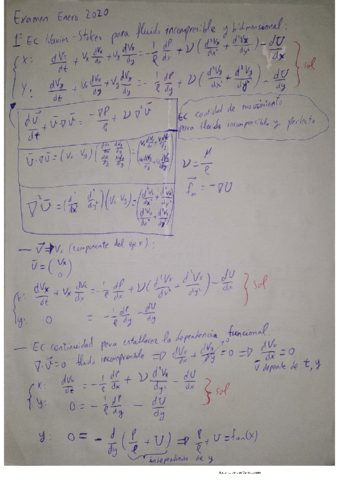 Examen Enero 2020
1º Ec Navier-Stokes para fluido incompresible y bidimensional:
x: dVx/dt + Vx dVx/dx + Vy dVx/dy = -1/ρ dP/dx + ν(d²Vx/dx² + d²Vx/dy²) - dU/dx
y: dVy/dt + Vx dVy/dx + Vy dVy/dy = -1/ρ dP/dy + ν(d²Vy/dx² + d²Vy/dy²) - dU/dy
sol
dv⃗/dt + v⃗·∇v⃗ = -∇P/ρ + ν∇²v⃗
Ec cantidad de movimiento
para fluido incompresible y perfecto
ν = μ/ρ
f⃗m = -∇U
— v⃗ → Vx (componente del eje x):
v⃗ = (Vx 0)
x: dVx/dt + Vx dVx/dx = -1/ρ dP/dx + ν(d²Vx/dx² + d²Vx/dy²) - dU/dx
y: 0 = -1/ρ dP/dy - dU/dy
sol
— Ec continuidad para establecer la dependencia funcional
∇·v⃗ = 0 fluido incompresible ⇒ dVx/dx + dVy/dy = 0 ⇒ dVx/dx = 0
v depende de t, y
x: dVx/dt = -1/ρ dP/dx + ν d²Vx/dy² - dU/dx
y: 0 = -1/ρ dP/dy - dU/dy
sol
y: 0 = -d/dy (P/ρ + U) ⇒ P/ρ + U = fun(x)
independiente de y